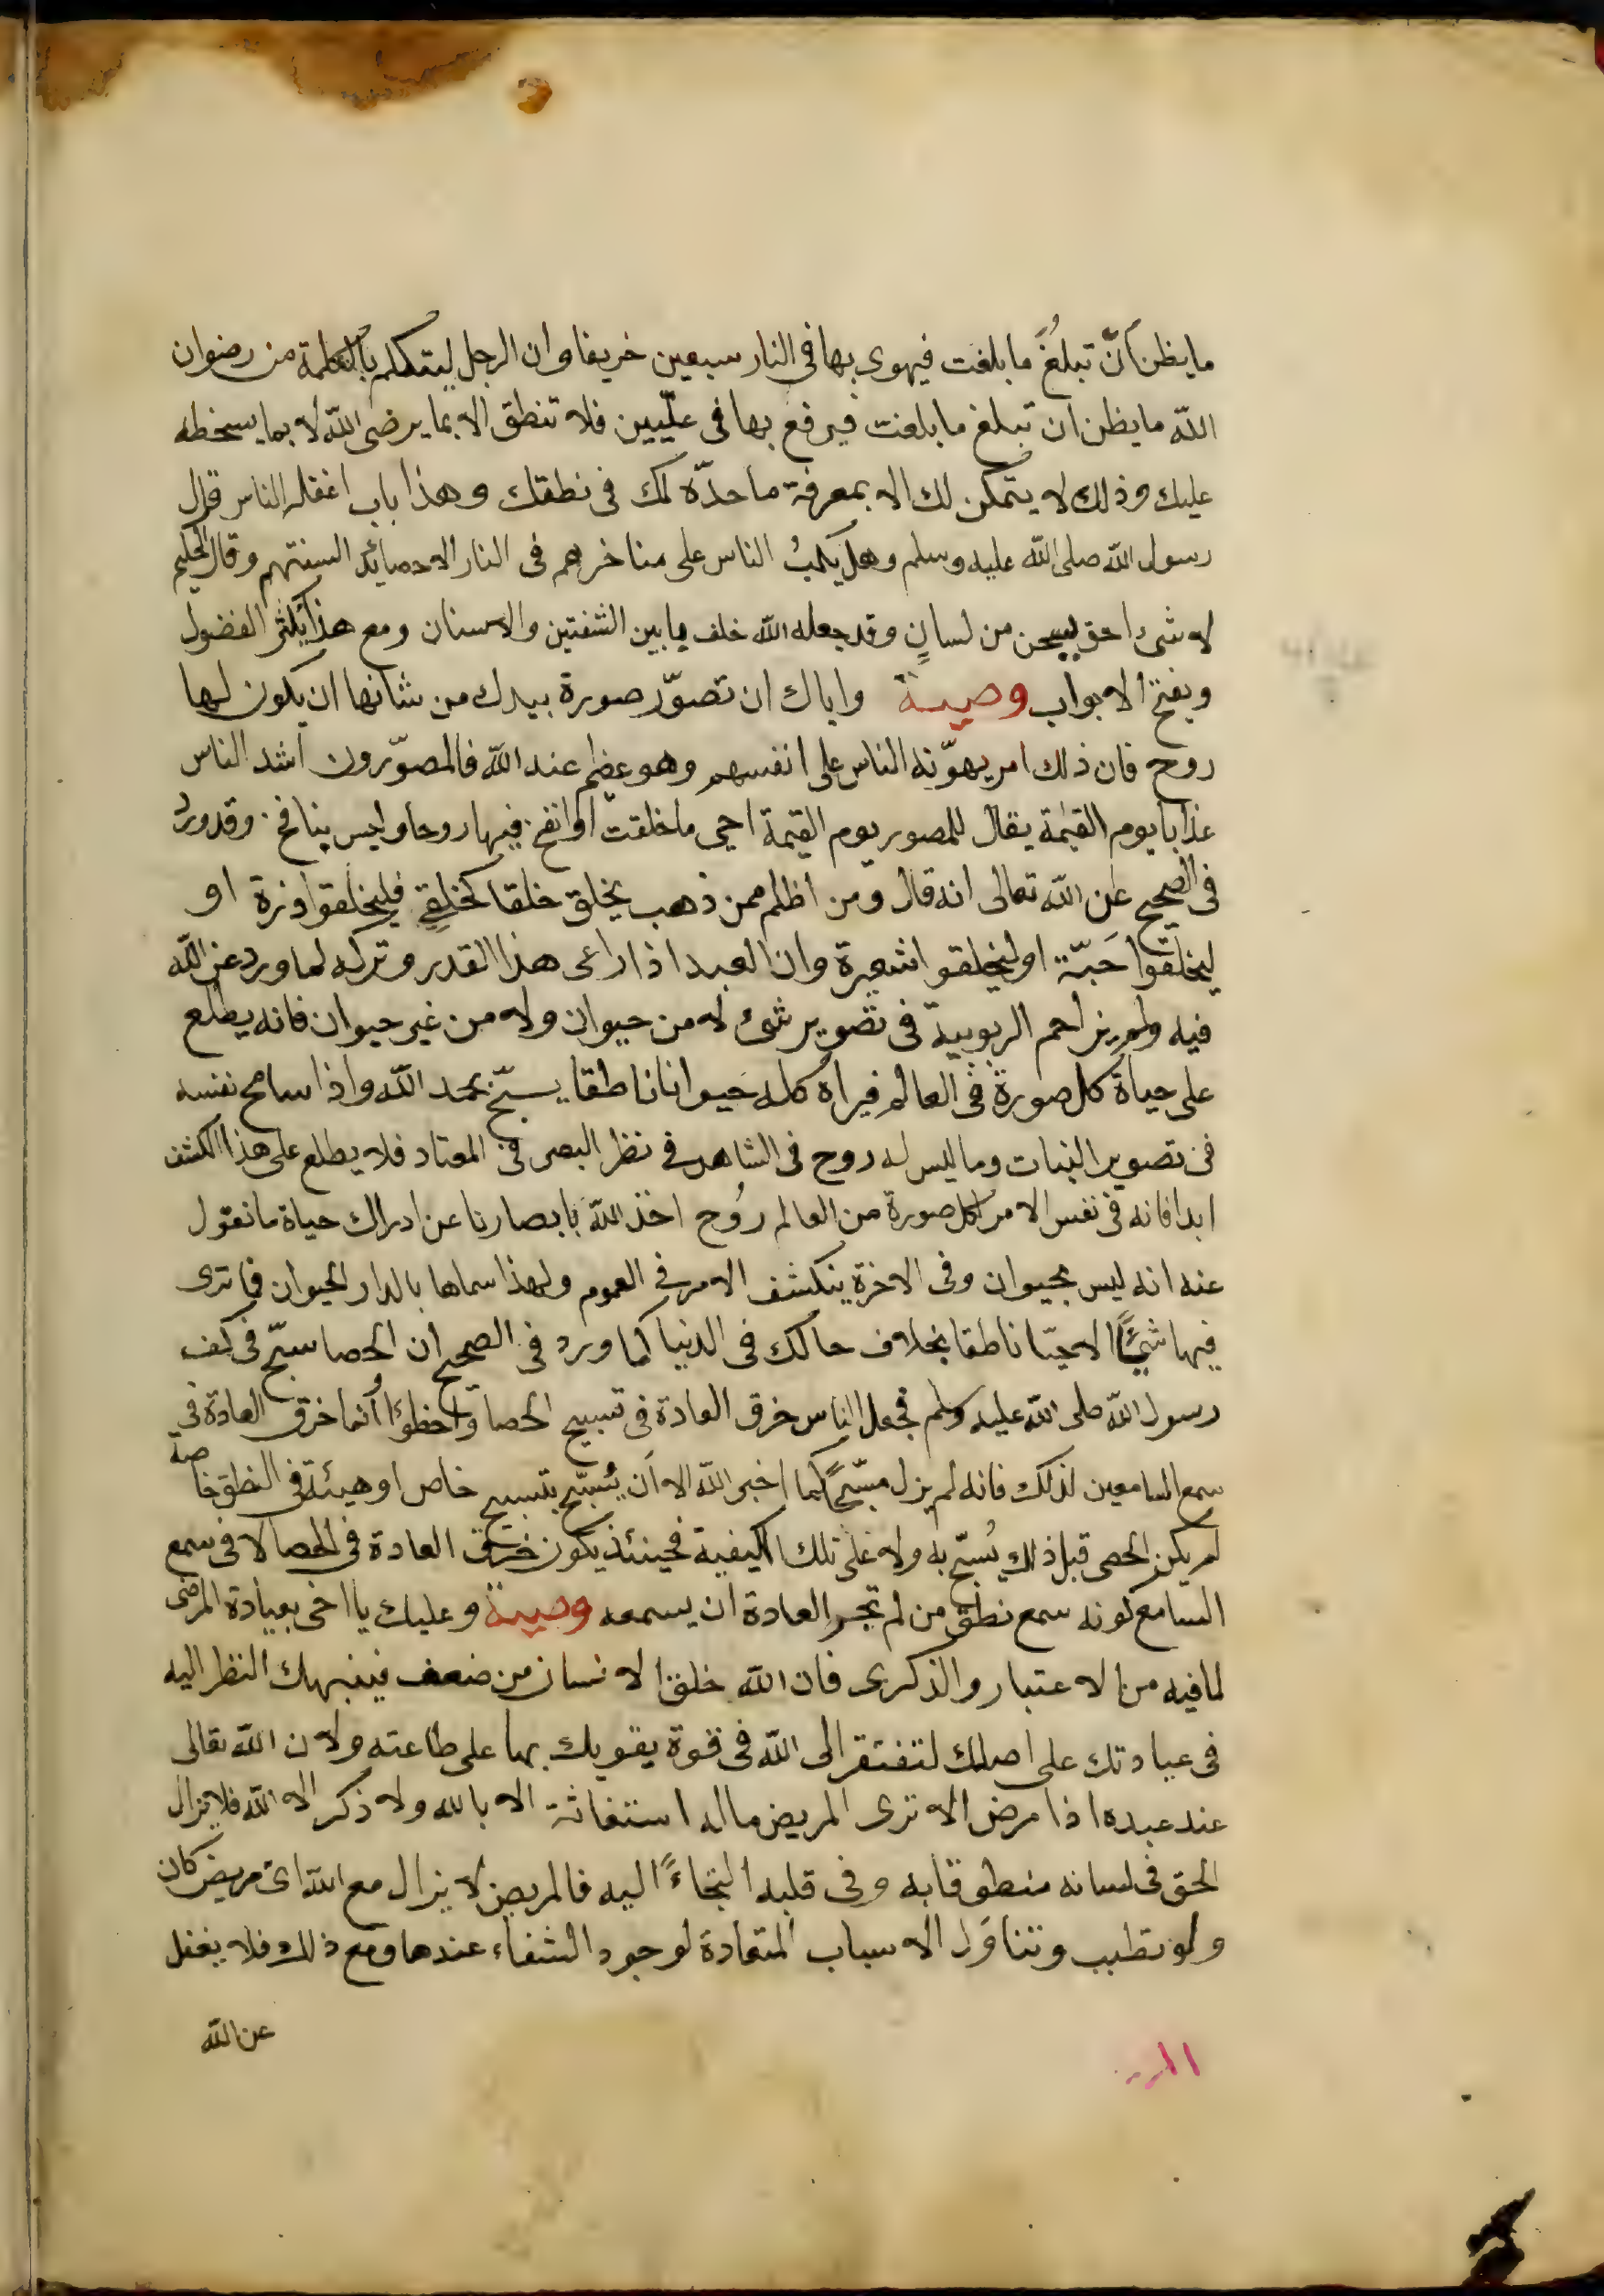 ما يظن أنّ تبلغُ ما بلغت فيهوى بها فى النار سبعين خريفا وان الرجل ليتكلم بالكلمة من رضوان
الله ما يظن ان تبلغ ما بلغت فيرفع بها فى علّيين فلا تنطق الا بما يرضى الله لا بما يسخطه
عليك وذلك لا يتمكن لك الا بمعرفة ما حدّه لك فى نطقك وهذا باب اغفله الناس قال
رسول الله صلى الله عليه وسلم وهل يكبُ الناس على مناخرهم فى النار الا حصائد السنتهم وقال الحكيم
لا شئ احق بسجن من لسانٍ وقد جعله الله خلف بابين الشفتين والاسنان ومع هذا يكثر الفضول
ويفتح الابواب وصية واياك ان تصوّر صورة بيدك من شانها ان يكون لها
روح فان ذلك امر يهوّنه الناس على انفسهم وهو عظيم عند الله فالمصوّرون اشد الناس
عذابا يوم القيمة يقال للمصور يوم القيمة احى ما خلقت او انفخ فيها روحا وليس بنافخ وقد ورد
فى الصحيح عن الله تعالى انه قال ومن اظلم ممن ذهب يخلق خلقا كخلقى فليخلقوا ذرة او
ليخلقوا حَبّة او ليخلقوا شعيرة وان العبد اذا راعى هذا القدر وتركه لما ورد عن الله
فيه ولم يزاحم الربوبية فى تصوير شئ لا من حيوان ولا من غير حيوان فانه يطلع
على حياة كل صورة فى العالم فيراه كله حيوانا ناطقا يسبّح بحمد الله واذا سامح نفسه
فى تصوير النبات وما ليس له روح فى الشاهد فى نظر البصر فى المعتاد فلا يطلع على هذا الكشف
ابدا فانه فى نفس الامر لكل صورة من العالم رُوح اخذ الله بابصارنا عن ادراك حياة ما نقول
عنه انه ليس بحيوان وفى الاخرة ينكشف الامر فى العموم ولهذا سماها بالدار الحيوان فما ترى
فيها شيئًا الا حيّا ناطقا بخلاف حالك فى الدنيا كما ورد فى الصحيح ان الحصا سبّح فى كف
رسول الله صلى الله عليه وسلم فجعل الناس خرق العادة فى تسبيح الحصا واخطؤا أنما خرق العادة فى
سمع السامعين لذلك فانه لم يزل مسبّحًا كما اخبر الله الا أن يُسبّح بتسبيح خاص او هيئة فى النطق خاصة
لم يكن الحصى قبل ذلك يُسبّح به ولا على تلك الكيفية فحينئذ يكون خرق العادة فى الحصا لا فى سمع
السامع كونه سمع نطق من لم تجر العادة ان يسمعه وصية وعليك يا اخى بعيادة المرضى
لما فيه من الاعتبار والذكرى فان الله خلق الانسان من ضعف فينبهك النظر اليه
فى عيادتك على اصلك لتفتقر الى الله فى قوة يقويك بها على طاعته ولان الله تعالى
عند عبده اذا مرض الا ترى المريض ماله استغاثة الا بالله ولا ذكر الا الله فلا يزال
الحق فى لسانه منطوقا به وفى قلبه التجاءً اليه فالمريض لا يزال مع الله اىّ مريض كان
ولو تطبب وتناول الاسباب المتعادة لوجود الشفاء عندها ومع ذلك فلا يغفل
عن الله